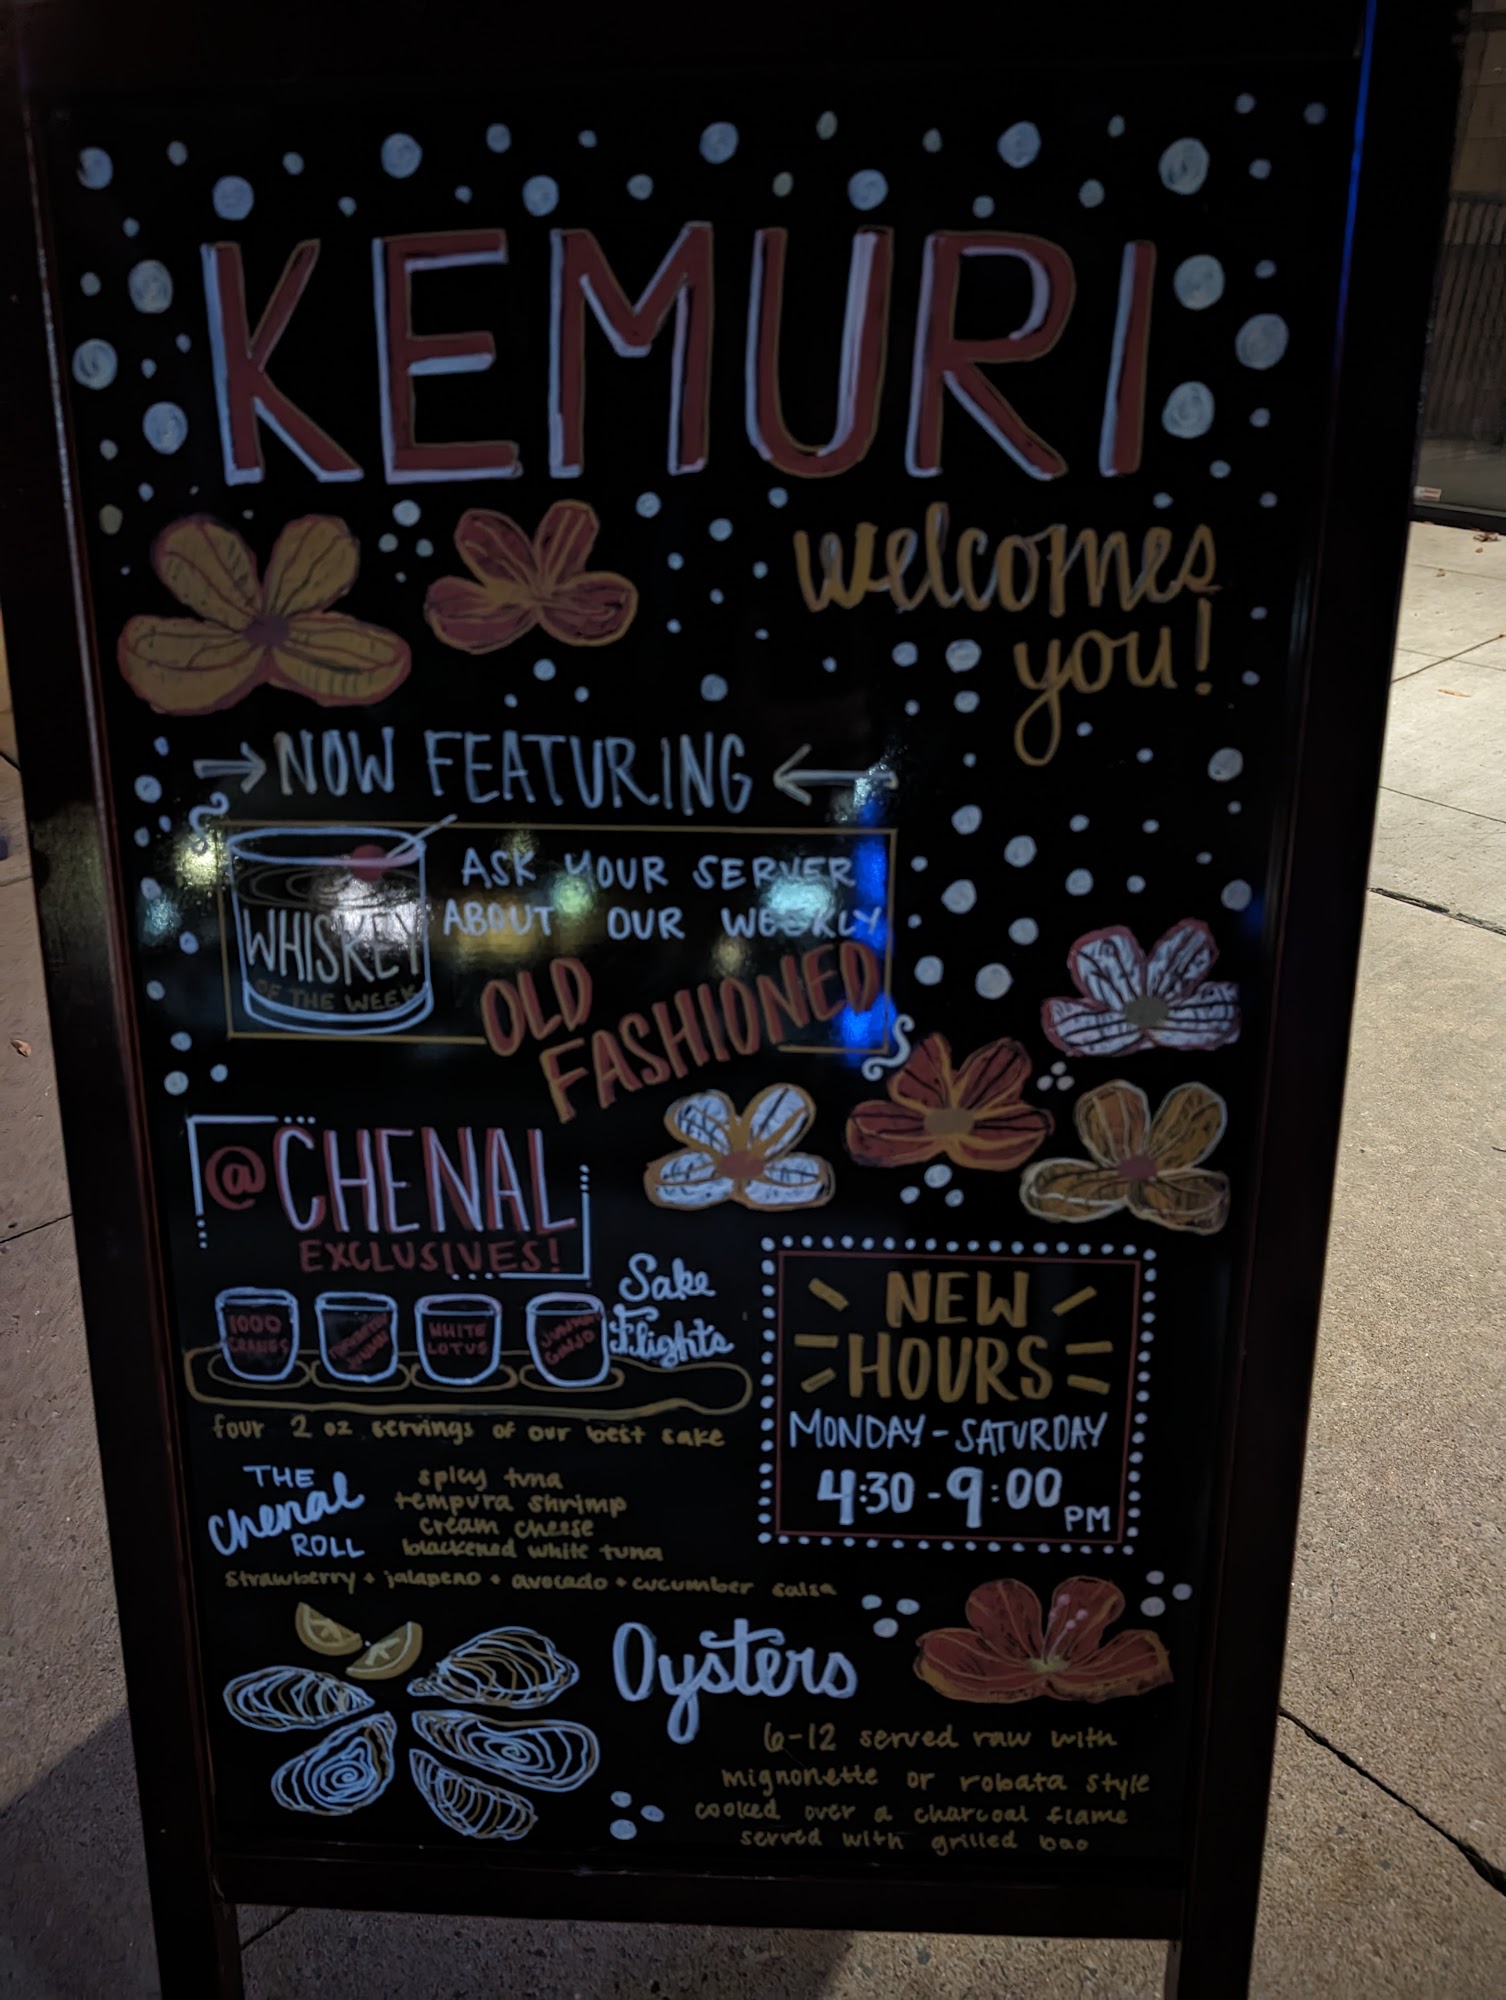 KEMURI
welcomes
you!
NOW FEATURING
WHISKEY
OF THE WEEK
ASK YOUR SERVER
ABOUT OUR WEEKLY
OLD
FASHIONED
@CHENAL
EXCLUSIVES!
Sake
Flights
1000
CRANES
WHITE
LOTUS
JUNMAI
GINJO
four 2 oz servings of our best sake
NEW
HOURS
MONDAY-SATURDAY
4:30-9:00 PM
THE
Chenal
ROLL
spicy tuna
tempura shrimp
cream cheese
blackened white tuna
strawberry + jalapeno + avocado + cucumber salsa
Oysters
6-12 served raw with
mignonette or robata style
cooked over a charcoal flame
served with grilled bao